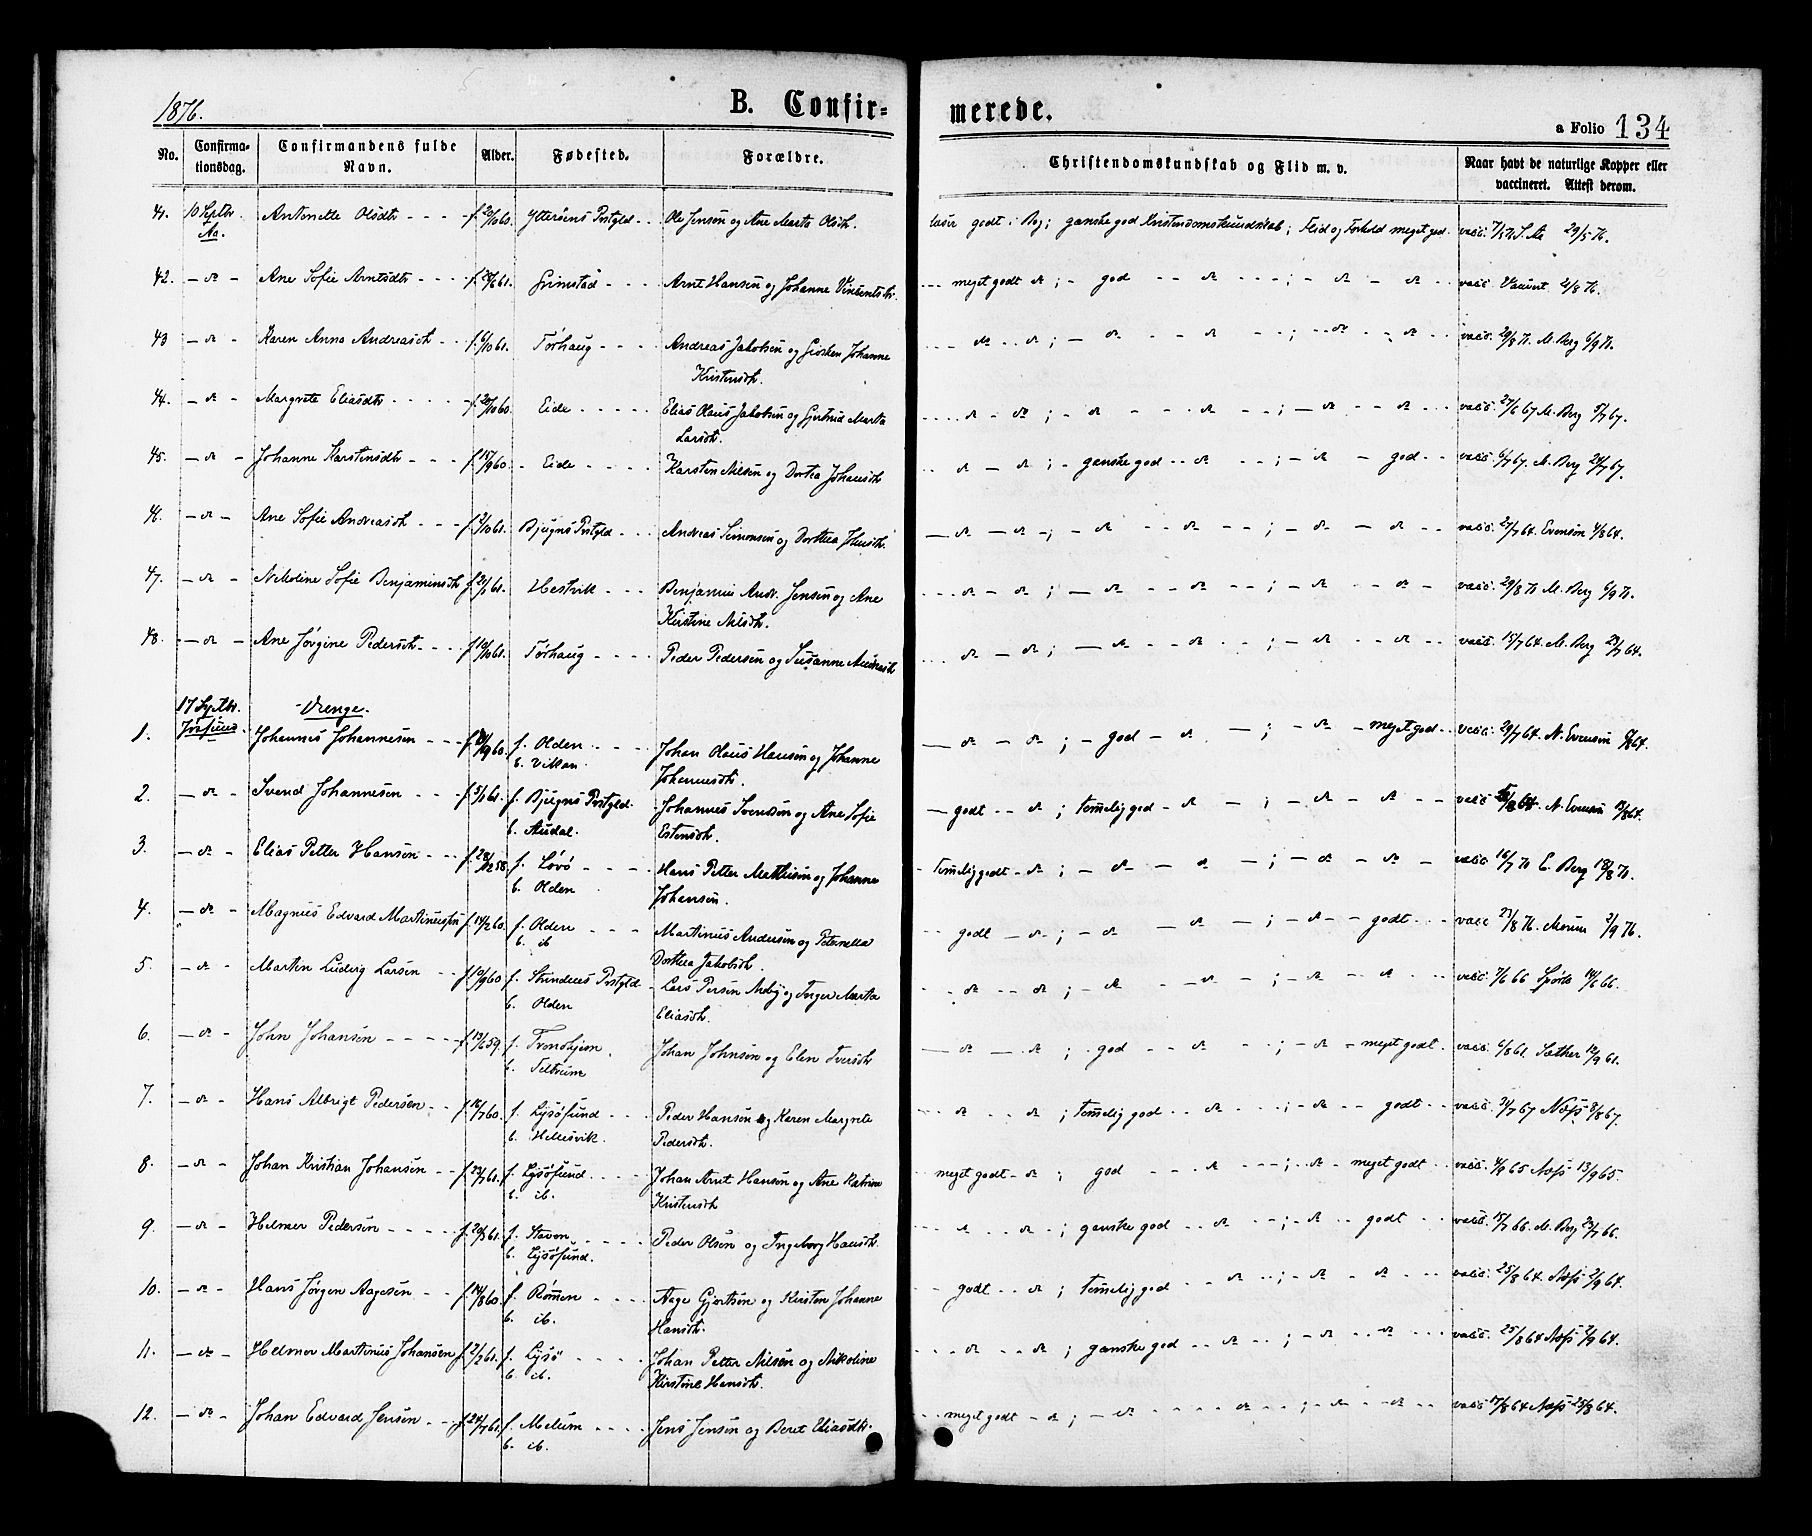 1876.
B. Confir=
merede.
a Folio 134
No. Confirma-tionsdag. Confirmandens fulde Navn. Alder. Fødested. Forældre. Christendomskundskab og Flid m. v. Naar havt de naturlige Kopper eller vaccineret. Attest derom.
41. 10 Septbr. Aa. Antonette Olsdtr f. 60. Ytterøens Prstgld Ole Jensen og Ane Marta Olsdtr. læser godt i Bog; ganske god Kristendomskundskab; Flid og Forhold meget god. vacc. 29/5 76.
42. Ane Sofie Arntsdtr 61. Grimstad Arnt Hansen og Johanne meget godt do; god do ; do do vacc.
43 Karen Anna Andreasdtr f. 6/10 61. Tørhaug Andreas Jakobsen og Johanne
Kristensdtr. do do; do do ; do do vacc. 29/8 71. M. Berg 6/9 71.
44. Margrete Eliasdtr f. 20/10 60. Eide Elias Olaus Jakobsen og Gjertrud Marta
Larsdtr. do do; do do ; do do vacc. 27/6 67 M. Berg 5/7 67.
45. Johanne Karstensdtr f. 15/9 60. Eide Karsten Nilsen og Dortea Johansdtr do do; ganske god do ; do god vacc. 6/7 67. M. Berg 24/7 67.
46. Ane Sofie Andreasdtr 61. Bjugns Prstgld Andreas Simonsen og Dorthea do do; do do ; do do vacc. 27/7 64. Evensen 4/8 64.
47. Nikoline Sofie Benjaminsdtr 61. Hestvik Benjamin Andr. Jensen og Ane
Kirstine Nilsdtr. do do; do do ; do do vacc. 29/8 71 M. Berg 6/9 71.
48. Ane Jørgine Pedersdtr f. 10/10 61. Tørhaug Peder Pedersen og Susanne do do; do do ; do do vacc. 15/7 64. M. Berg 23/7 64.
17 Septbr. Drenge.
1. Johannes Johannesen f. 60. f. Olden
b. Vikan Johan Olaus Hansen og Johanne
Johannesdtr. do do; god do ; do meget god vacc. 29/7 64. N. Evensen 64.
2. Svend Johannesen 61. f. Bjugns Prstgld.
b. Audal. Johannes Svendsen og Ane Sofie
Estensdtr. godt do; temelig god do ; do do vacc. N. Evensen
3. Elias Petter Hansen f. 28/12 58. f. Løvø
b. Olden Hans Petter Mathisen og Johanne
Johansen. Temelig godt do; do do ; do do vacc. 16/7 71 E. Berg 18/8 71.
4. Magnus Edvard Martinussen f. 14/2 60. f. Olden
b. ib Martinus Andersen og Peternella
Dorthea Jakobsdtr. godt do; do do ; do godt vacc. 23/8 76. 2/9 76.
5. Marten Ludvig Larsen f. 10/9 60 f. Strindens Prstgld
b. Olden Lars Persen Moby og Marta
Eliasdtr. do do; do do ; do do vacc. 7/6 66 14/6 66.
6. John Johansen f. 13/6 59. f. Trondhjem
b. Teltrum Johan Johnsen og Elen Iversdtr do do; god do ; do meget godt. vacc. 6/8 61. Sæther 12/9 61.
7. Hans Albrigt Pedersen f. 16/7 60. f. Lysøsund
b. Hellesvik. Peder Hansen og Karen Margrete
Pedersdtr. do do; temelig god do ; do godt vacc. 24/7 67 Næss 3/8 67.
8. Johan Kristian Johansen f. 23/7 61. f. Lysøsund
b. ib. Johan Arnt Hansen og Ane Katrine
Kristensdtr meget godt do; god do ; do meget godt vacc. 4/9 65 Næss 13/9 65.
9. Helmer Pedersen f. 20/3 61. f. Stavøn
b. Lysøsund. Peder Olsen og Ingeborg Hansdtr. do do; ganske god do ; do godt vacc. 15/7 66. M. Berg 23/7 66.
10. Hans Jørgen Aagesen f. 14/8 60. f. Rømen
b. ib. Aage Gjertsen og Kirsten Johanne
Hansdtr. godt do; temelig god do ; do do vacc. 25/8 64. Næss 2/9 64.
11. Helmer Martinus Johansen f. 2/2 61. f. Lysø
b. ib. Johan Petter Nilsen og Nikoline
Kirstine Hansdtr. do do; ganske god do ; do do vacc. 25/8 64 Næss 2/9 64.
12. Johan Edvard Jensen f. 24/7 61. f. Melum
b. ib. Jens Jensen og Beret Eliasdtr. meget godt do; do do ; do do vacc. 17/8 64 Næss 25/8 64.